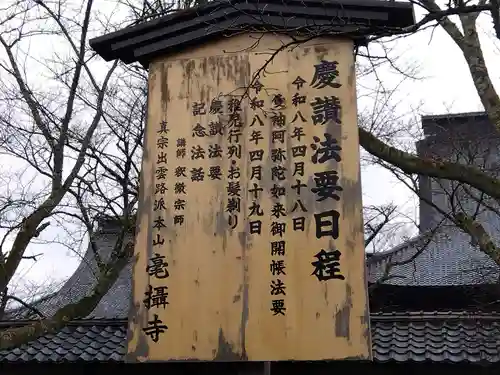 慶讃法要日程
令和八年四月十八日
霊神阿弥陀如来御開帳法要
令和八年四月十九日
後尾行列・お髪剃り
慶讃法要
記念法話
講師 釈徹宗師
真宗出雲路派本山
毫攝寺